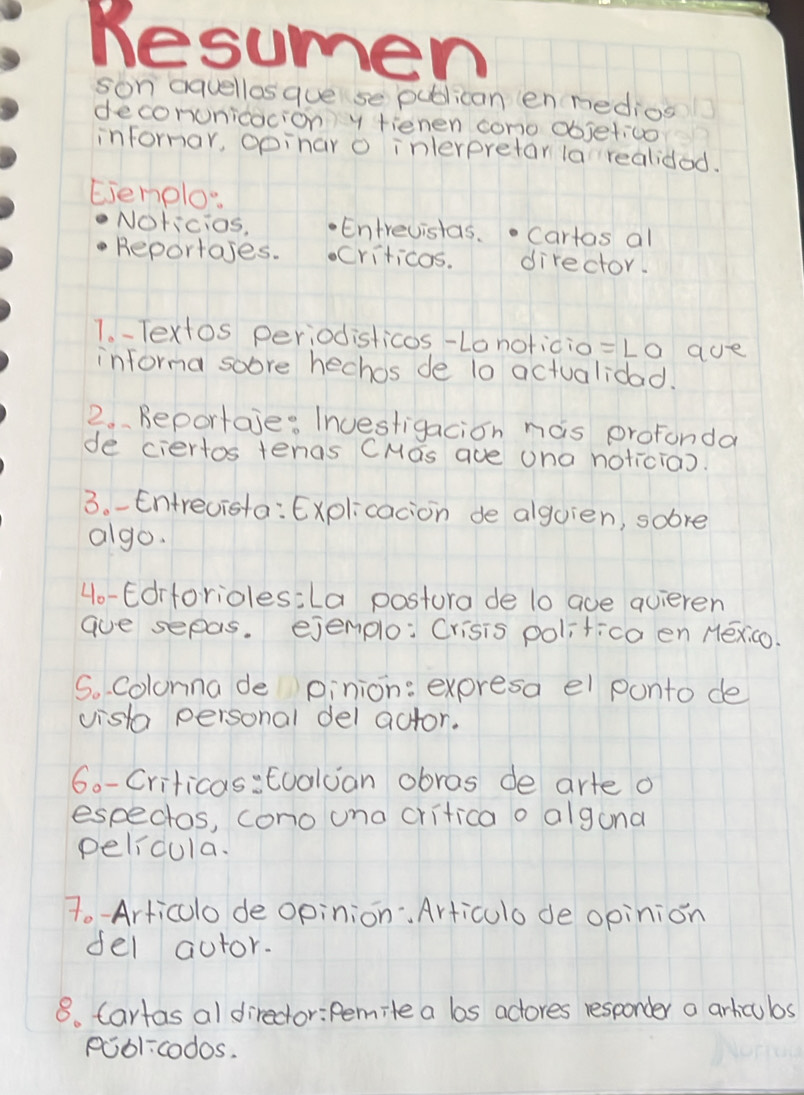 Resumen
son aquellos que se publican en medios
de comunicación y tienen como objetivo
informar, opinar o interpretar la realidad.
Ejemplo:
• Noticias. • Entrevistas. • Cartas al
• Reportajes. • Críticas. director.
1.- Textos periodisticos - La noticia = Lo que
informa sobre hechos de la actualidad.
2.- Reportaje: Investigación más profunda
de ciertos temas (Más que una noticia).
3.- Entrevista: Explicación de alguien, sobre
algo.
4.- Editoriales: La postura de lo que quieren
que sepas. ejemplo: Crisis política en México.
5. Columna de pinión: expresa el punto de
vista personal del autor.
6.- Criticas: Evalúan obras de arte o
espectos, como una crítica o alguna
película.
7.- Articulo de opinion: Articulo de opinión
del autor.
8. Cartas al director: Pemite a los actores responder a articulos
públicados.